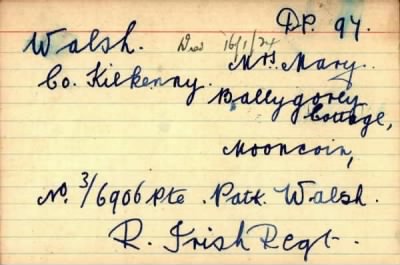 DP. 97.
Walsh. Died 16/1/24 Mrs. Mary.
Co. Kilkenny. Ballygorey
Cottage,
Mooncoin,
No. 3/6906 Pte. Patk. Walsh.
R. Irish Regt.